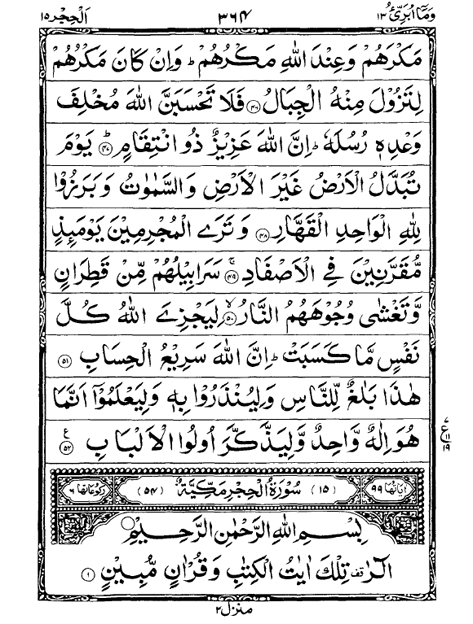 وَمَآ اُبَرِّئُ ١٣ ٣٦٤ اَلْحِجْر ١٥
مَكْرَهُمْ وَعِنْدَ اللّٰهِ مَكْرُهُمْ ؕ وَاِنْ كَانَ مَكْرُهُمْ
لِتَزُوْلَ مِنْهُ الْجِبَالُ ﴿۴۶﴾ فَلَا تَحْسَبَنَّ اللّٰهَ مُخْلِفَ
وَعْدِهٖ رُسُلَهٗ ؕ اِنَّ اللّٰهَ عَزِيْزٌ ذُو انْتِقَامٍ ؕ ﴿۴۷﴾ يَوْمَ
تُبَدَّلُ الْاَرْضُ غَيْرَ الْاَرْضِ وَالسَّمٰوٰتُ وَبَرَزُوْا
لِلّٰهِ الْوَاحِدِ الْقَهَّارِ ﴿۴۸﴾ وَتَرَى الْمُجْرِمِيْنَ يَوْمَئِذٍ
مُّقَرَّنِيْنَ فِى الْاَصْفَادِ ۚ ﴿۴۹﴾ سَرَابِيْلُهُمْ مِّنْ قَطِرَانٍ
وَّتَغْشٰى وُجُوْهَهُمُ النَّارُ ۙ ﴿۵۰﴾ لِيَجْزِىَ اللّٰهُ كُلَّ
نَفْسٍ مَّا كَسَبَتْ ؕ اِنَّ اللّٰهَ سَرِيْعُ الْحِسَابِ ﴿۵۱﴾
هٰذَا بَلٰغٌ لِّلنَّاسِ وَلِيُنْذَرُوْا بِهٖ وَلِيَعْلَمُوْۤا اَنَّمَا
هُوَ اِلٰهٌ وَّاحِدٌ وَّلِيَذَّكَّرَ اُولُوا الْاَلْبَابِ ﴿۵۲﴾ ع
٧ ع ١١ ١٩
اٰيَاتُهَا ٩٩ (١٥) سُوْرَةُ الْحِجْرِ مَكِّيَّةٌ (٥٤) رُكُوْعَاتُهَا ٦
بِسْمِ اللّٰهِ الرَّحْمٰنِ الرَّحِيْمِ
الٓرٰ ۟ تِلْكَ اٰيٰتُ الْكِتٰبِ وَقُرْاٰنٍ مُّبِيْنٍ ﴿۱﴾
منزل ٣